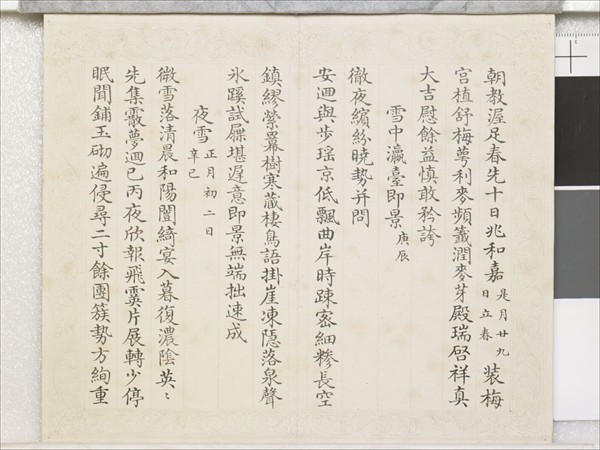 朝教渥足春先十日兆和嘉是月廿九日立春裝梅
宮植舒梅萼利麥頻籤潤麥芽殿瑞啓祥真
大吉慰餘益慎敢矜誇
雪中瀛臺即景庚辰
徹夜繽紛曉勢并問
安迴與步瑤京低飄曲岸時踈密細糝長空
鎮繆縈羃樹寒藏棲鳥語掛崖凍隱落泉聲
氷蹊試屧堪遲意即景無端拙速成
夜雪正月初二日辛巳
微雪落清晨和陽闓綺宴入暮復濃陰英〻
先集霰夢迴已丙夜欣報飛霙片展轉少停
眠聞鋪玉砌遍侵尋二寸餘團簇勢方絢重